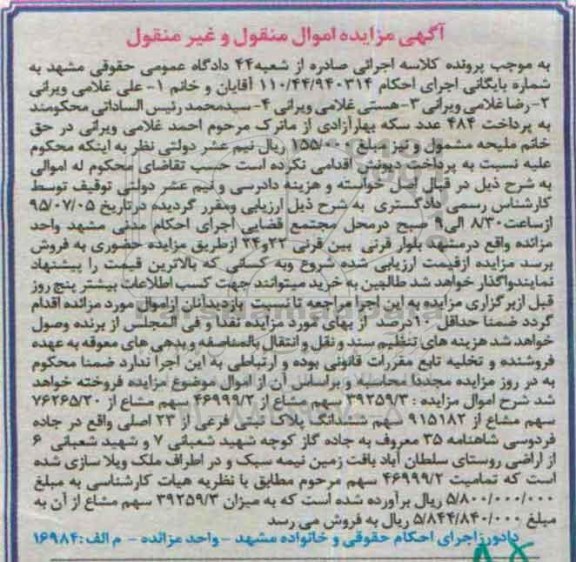 آگهی مزایده اموال منقول و غیر منقول
به موجب پرونده کلاسه اجرائی صادره از شعبه۴۴ دادگاه عمومی حقوقی مشهد به
شماره بایگانی اجرای احکام ۱۱۰/۴۴/۹۴۰۳۱۴ آقایان و خانم ۱- علی غلامی ویرانی
۲- رضا غلامی ویرانی ۳-هستی غلامی ویرانی ۴-سیدمحمد رئیس الساداتی محکومند
به پرداخت ۴۸۴ عدد سکه بهارآزادی از ماترک مرحوم احمد غلامی ویرانی در حق
خانم ملیحه مشمول و نیز مبلغ ریال نیم عشر دولتی نظر به اینکه محکوم
علیه نسبت به پرداخت دیونش اقدامی نکرده است حسب تقاضای محکوم له اموالی
به شرح ذیل در قبال اصل خواسته و هزینه دادرسی و نیم عشر دولتی توقیف توسط
کارشناس رسمی دادگستری به شرح ذیل ارزیابی ومقرر گردیده درتاریخ ۹۵/۰۷/۰۵
ازساعت۸/۳۰ الی۹ صبح درمحل مجتمع قضایی اجرای احکام مدنی مشهد واحد
مزائده واقع درمشهد بلوار قرنی بین قرنی ۲۲و۲۴ ازطریق مزایده حضوری به فروش
برسد مزایده ازقیمت ارزیابی شده شروع وبه کسانی که بالاترین قیمت را پیشنهاد
نمایندواگذار خواهد شد طالبین به خرید میتوانند جهت کسب اطلاعات بیشتر پنج روز
قبل ازبرگزاری مزایده به این اجرا مراجعه تا نسبت بازدیدآنان ازاموال مورد مزائده اقدام
گردد ضمنا حداقل ۱۰درصد از بهای مورد مزایده نقدا و فی المجلس از برنده وصول
خواهد شد هزینه های تنظیم سند و نقل و انتقال بالمناصفه و بدهی های معوقه به عهده
فروشنده و تخلیه تابع مقررات قانونی بوده و ارتباطی به این اجرا ندارد ضمنا محکوم
به در روز مزایده مجددا محاسبه و براساس آن از اموال موضوع مزایده فروخته خواهد
شد شرح اموال مزایده : ۳۹۲۵۹/۳ سهم مشاع از ۴۶۹۹۹/۲ سهم مشاع از ۷۶۲۶۵/۲۰
سهم مشاع از ۹۱۵۱۸۲ سهم ششدانگ پلاک ثبتی فرعی از ۲۳ اصلی واقع در جاده
فردوسی شاهنامه ۳۵ معروف به جاده گاز کوچه شهید شعبانی ۷ و شهید شعبانی ۶
از اراضی روستای سلطان آباد بافت زمین نیمه سبک و در اطراف ملک ویلا سازی شده
است که تمامیت ۴۶۹۹۹/۲ سهم مرحوم مطابق با نظریه هیات کارشناسی به مبلغ
۵/۸۰۰/۰۰۰/۰۰۰ ریال برآورده شده است که به میزان ۳۹۲۵۹/۳ سهم مشاع از آن به
مبلغ ۵/۸۴۴/۸۴۰/۰۰۰ ریال به فروش می رسد
دادورزاجرای احکام حقوقی و خانواده مشهد -واحد مزائده - م الف:۱۶۹۸۴